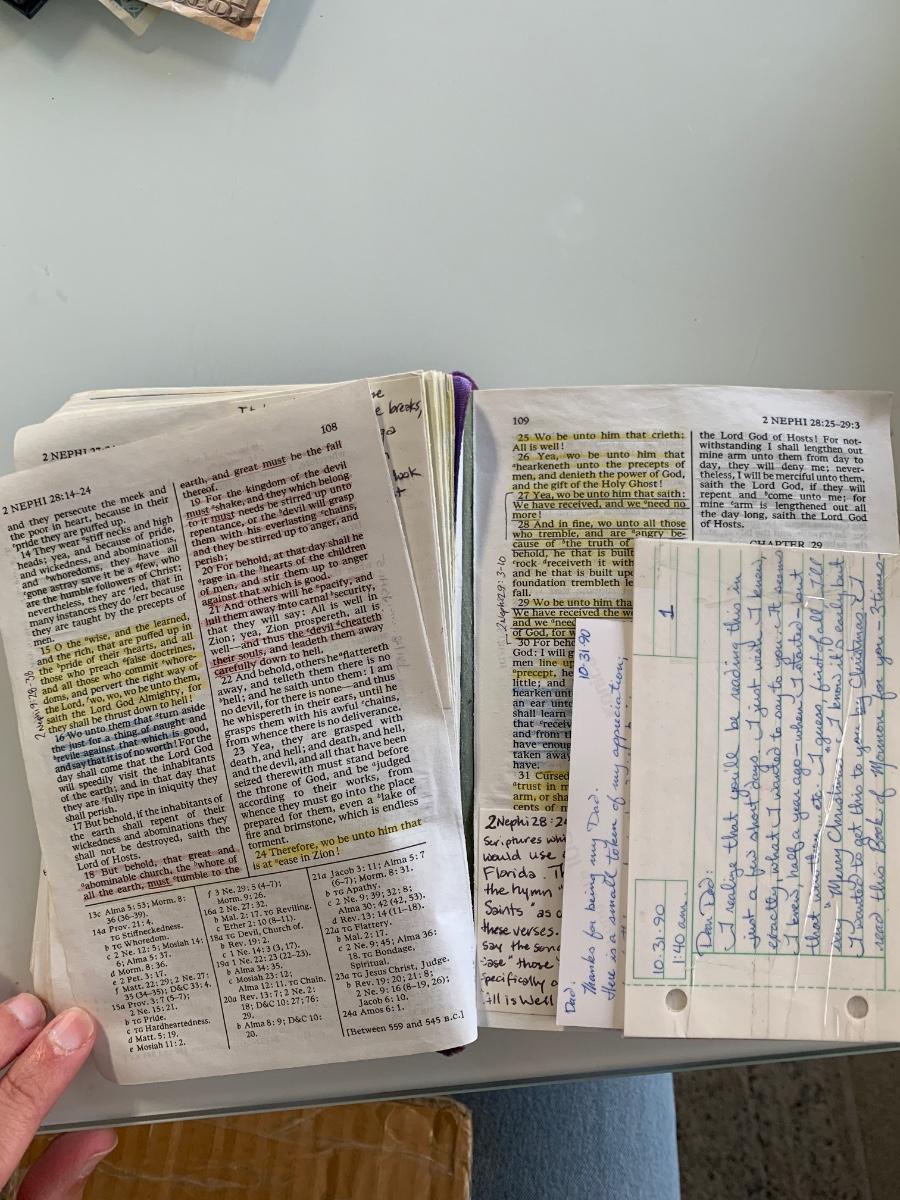 108
2 NEPHI 28:14–24
and they persecute the meek and
the poor in heart, because in their
ᵃpride they are puffed up.
14 They ᵃwear ᵇstiff necks and high
heads; yea, and because of pride,
and wickedness, and abominations,
and ᶜwhoredoms, they have all
gone astray save it be a ᵈfew, who
are the humble followers of Christ;
nevertheless, they are ᵉled, that in
many instances they do ᶠerr because
they are taught by the precepts of
men.
15 O the ᵃwise, and the learned,
and the rich, that are puffed up in
the ᵇpride of their ᶜhearts, and all
those who preach ᵈfalse doctrines,
and all those who commit ᵉwhore-
doms, and pervert the right way of
the Lord, ᶠwo, wo, wo be unto them,
saith the Lord God Almighty, for
they shall be thrust down to hell!
16 Wo unto them that ᵃturn aside
the just for a thing of naught and
ᵇrevile against that which is good,
and say that it is of no worth! For the
day shall come that the Lord God
will speedily visit the inhabitants
of the earth; and in that day that
they are ᶜfully ripe in iniquity they
shall perish.
17 But behold, if the inhabitants of
the earth shall repent of their
wickedness and abominations they
shall not be destroyed, saith the
Lord of Hosts.
18 But behold, that great and
ᵃabominable church, the ᵇwhore of
all the earth, must ᶜtumble to the
earth, and great must be the fall
thereof.
19 For the kingdom of the devil
must ᵃshake, and they which belong
to it must needs be stirred up unto
repentance, or the ᵇdevil will grasp
them with his everlasting ᶜchains,
and they be stirred up to anger, and
perish;
20 For behold, at that day shall he
ᵃrage in the ᵇhearts of the children
of men, and stir them up to anger
against that which is good.
21 And others will he ᵃpacify, and
lull them away into carnal ᵇsecurity,
that they will say: All is well in
Zion; yea, Zion prospereth, all is
well—and thus the ᶜdevil ᵈcheateth
their souls, and leadeth them away
carefully down to hell.
22 And behold, others he ᵃflattereth
away, and telleth them there is no
ᵇhell; and he saith unto them: I am
no devil, for there is none—and thus
he whispereth in their ears, until he
grasps them with his awful ᶜchains,
from whence there is no deliverance.
23 Yea, they are grasped with
death, and hell; and death, and hell,
and the devil, and all that have been
seized therewith must stand before
the throne of God, and be ᵃjudged
according to their works, from
whence they must go into the place
prepared for them, even a ᵇlake of
fire and brimstone, which is endless
torment.
24 Therefore, wo be unto him that
is at ᵃease in Zion!
13c Alma 5:53; Morm. 8:
36 (36–39).
14a Prov. 21:4.
b TG Stiffneckedness.
c TG Whoredom.
d Morm. 8:36.
e 2 Pet. 3:17.
15a Prov. 3:7 (5–7);
2 Ne. 15:21.
b TG Pride.
c TG Hardheartedness.
d Matt. 5:19.
e Mosiah 11:2.
f 3 Ne. 29:5 (4–7);
Morm. 9:26.
16a 2 Ne. 27:32.
b Mal. 2:17. TG Reviling.
c Ether 2:10 (8–11).
18a TG Devil, Church of.
b Rev. 19:2.
c 1 Ne. 14:3 (3, 17).
19a 1 Ne. 22:23 (22–23).
b Alma 34:35.
c Mosiah 23:12;
Alma 12:11. TG Chain.
20a Rev. 13:7; 2 Ne. 2:
18; D&C 10:27; 76:
29.
b Alma 8:9; D&C 10:
20.
21a Jacob 3:11; Alma 5:7
(6–7); Morm. 8:31.
b TG Apathy.
c 2 Ne. 9:39; 32:8;
Alma 30:42 (42, 53).
d Rev. 13:14 (11–18).
22a TG Flattery.
b Mal. 2:17.
c 2 Ne. 9:45; Alma 36:
18. TG Bondage,
Spiritual.
23a TG Jesus Christ, Judge.
b Rev. 19:20; 21:8;
2 Ne. 9:16 (8–19, 26);
Jacob 6:10.
24a Amos 6:1.
[Between 559 and 545 B.C.]
2 NEPHI
breaks,
109
2 NEPHI 28:25–29:3
25 Wo be unto him that crieth:
All is well!
26 Yea, wo be unto him that
ᵃhearkeneth unto the precepts of
men, and denieth the power of God,
and the gift of the Holy Ghost!
27 Yea, wo be unto him that saith:
We have received, and we ᵃneed no
more!
28 And in fine, wo unto all those
who tremble, and are ᵃangry be-
cause of ᵇthe truth of
behold, he that is built
ᶜrock ᵈreceiveth it with
and he that is built upo
foundation trembleth le
fall.
29 Wo be unto him tha
We have received the wo
and we ᵃneed
of God, for w
30 For beho
God: I will g
men line up
ᵇprecept, he
little; and
hearken unto
an ear unto
shall learn
that ᵈreceiv
and from th
have enoug
taken away
have.
31 Cursed
ᵃtrust in m
arm, or sha
cepts of m
the Lord God of Hosts! For not-
withstanding I shall lengthen out
mine arm unto them from day to
day, they will deny me; never-
theless, I will be merciful unto them,
saith the Lord God, if they will
repent and ᵇcome unto me; for
mine ᶜarm is lengthened out all
the day long, saith the Lord God
of Hosts.
CHAPTER 29
2 Nephi 28:2
Scriptures whi
would use
Florida. Th
the hymn
Saints" as
these verses.
say the song
"ease" those
specifically
ill is Well
10.31.90
Dad,
Thanks for being my Dad.
Here is a small token of my appreciation.
10.31.90
1:40 am
1
Dear Dad:
I realize that you'll be reading this in
just a few short days. I just wish I knew
exactly what I wanted to say to you. It seems
I knew, half a year ago—when I started—but
that was then, etc. I guess, first of all, I'll
say "Merry Christmas". I know it's early but
I wanted to get this to you by Christmas. I
read this Book of Mormon for you—3 times